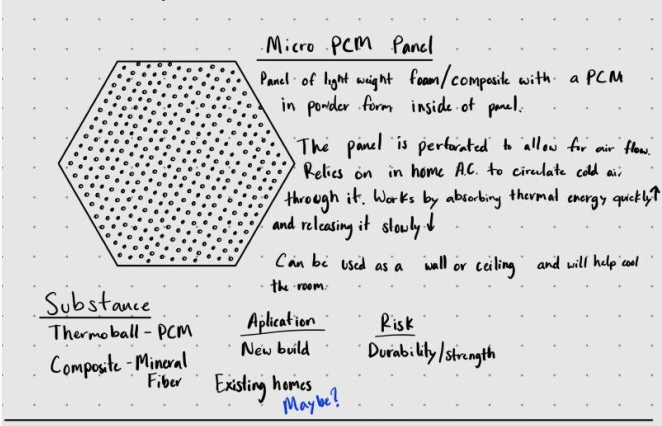 Micro PCM Panel
Panel of light weight foam/composite with a PCM
in powder form inside of panel.
The panel is perforated to allow for air flow.
Relies on in home A.C. to circulate cold air
through it. Works by absorbing thermal energy quickly↑
and releasing it slowly↓
Can be used as a wall or ceiling and will help cool
the room.
Substance
Thermoball - PCM
Composite - Mineral
Fiber
Aplication
New build
Existing homes
Maybe?
Risk
Durability/strength